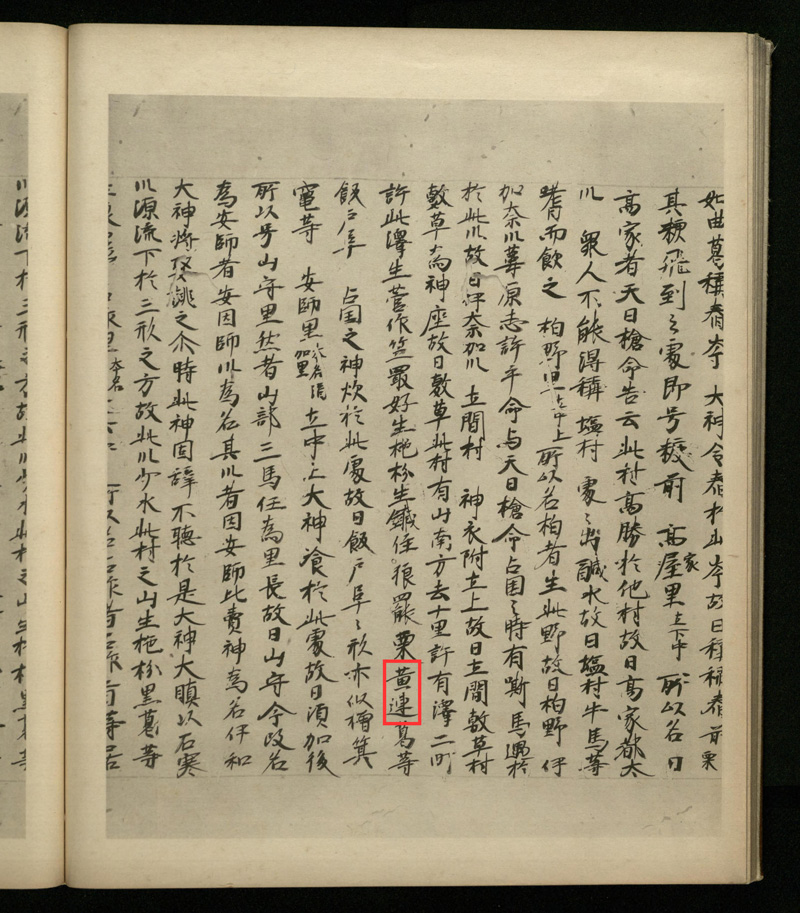 如曲葛積舂岑 大神令舂於此岑故曰稲舂前粟
其粳飛到之處即号粳前 高家里土下中 所以名曰
高家者天日槍命告云此村高勝於他村故曰高家都太
川 衆人不能得稱 塩村 處々出鹹水故曰塩村牛馬等
嗜而飲之 柏野里土中上所以名柏者生此野故曰柏野 伊
加奈川葦原志許乎命与天日槍命占国之時有嘶馬遇於
於此川故曰伊奈加川 土間村 神衣附土上故曰土間敷草村
敷草為神座故曰敷草此村有山南方去十里許有澤二町
許此澤生菅作笠最好生柂枌生鐵住狼羆栗黄連葛等
飯戸阜 占国之神炊於此處故曰飯戸阜々形亦似檜箕
竈等 安師里土中上大神飡於此處故曰須加後
所以号山守里然者山部三馬任為里長故曰山守今改名
為安師者安因師川為名其川者因安師比賣神為名伊和
大神将娶誂之尓時此神固辞不聴於是大神大瞋以石塞
川源流下於三形之方故此川少水此村之山生柂枌黒葛等